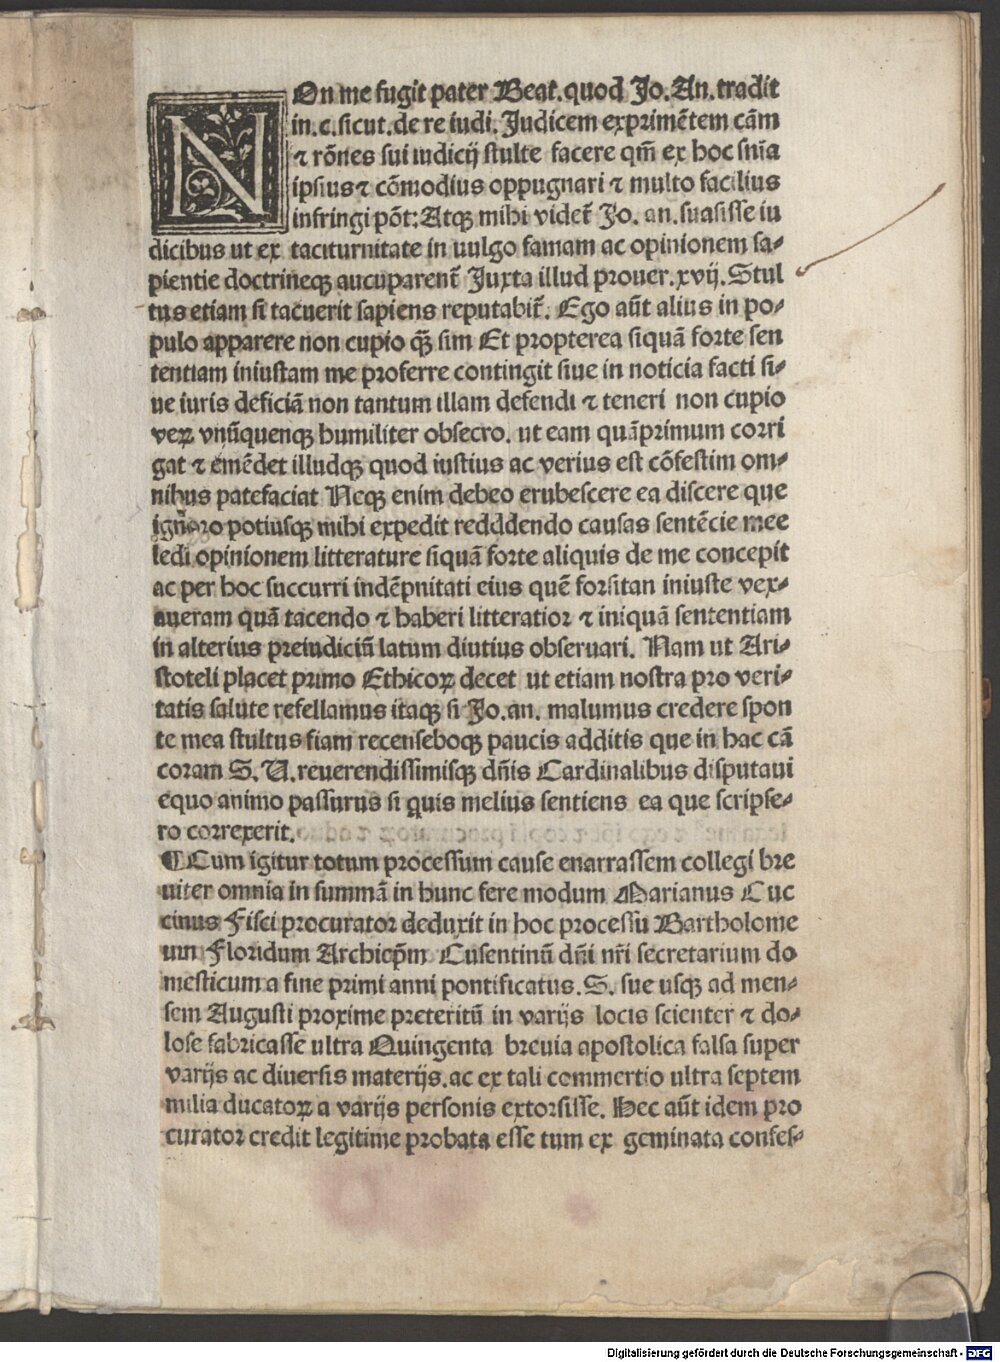 NOn me fugit pater Beat. quod Jo. An. tradit
in. c. sicut. de re iudi. Judicem exprimētem cām
⁊ rōnes sui iudicij stulte facere qm̄ ex hoc snīa
ipsius ⁊ cōmodius oppugnari ⁊ multo facilius
infringi pōt: Atqꝫ mihi videt̄ Jo. an. suasisse iu
dicibus ut ex taciturnitate in uulgo famam ac opinionem sa⸗
pientie doctrineqꝫ aucuparent̄ Juxta illud prouer. xvij. Stul
tus etiam si tacuerit sapiens reputabit̄. Ego aūt alius in po⸗
pulo apparere non cupio qꝫ̄ sim Et propterea siquā forte sen
tentiam iniustam me proferre contingit siue in noticia facti si⸗
ue iuris deficiā non tantum illam defendi ⁊ teneri non cupio
veꝝ vnūquenqꝫ humiliter obsecro. ut eam quāprimum corri
gat ⁊ emēdet illudqꝫ quod iustius ac verius est cōfestim om⸗
nibus patefaciat Neqꝫ enim debeo erubescere ea discere que
ignoro potiusqꝫ mihi expedit redddendo causas sentēcie mee
ledi opinionem litterature siquā forte aliquis de me concepit
ac per hoc succurri indēpnitati eius quē forsitan iniuste vex⸗
aueram quā tacendo ⁊ haberi litteratior ⁊ iniquā sententiam
in alterius preiudiciū latum diutius obseruari. Nam ut Ari⸗
stoteli placet primo Ethicoꝝ decet ut etiam nostra pro veri⸗
tatis salute refellamus itaqꝫ si Jo. an. malumus credere spon
te mea stultus fiam recenseboqꝫ paucis additis que in hac cā
coram S. V. reuerendissimisqꝫ dn̄is Cardinalibus disputaui
equo animo passurus si quis melius sentiens ea que scripse⸗
ro correxerit.
¶ Cum igitur totum processum cause enarrassem collegi bre
uiter omnia in summā in hunc fere modum Marianus Cuc
cinus Fisci procurator deduxit in hoc processu Bartholome
um Floridum Archiep̄m Cusentinū dn̄i nr̄i secretarium do
mesticum a fine primi anni pontificatus. S. sue usqꝫ ad men⸗
sem Augusti proxime preteritū in varijs locis scienter ⁊ do⸗
lose fabricasse ultra Quingenta breuia apostolica falsa super
varijs ac diuersis materijs. ac ex tali commertio ultra septem
milia ducatoꝝ a varijs personis extorsisse. Hec aūt idem pro
curator credit legitime probata esse tum ex geminata confes⸗
Digitalisierung gefördert durch die Deutsche Forschungsgemeinschaft - DFG